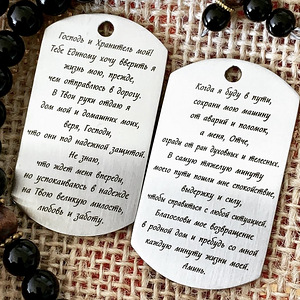 Господь и Хранитель мой!
Тебе Единому хочу вверить я
жизнь мою, прежде,
чем отправлюсь в дорогу.
В Твои руки отдаю я
дом мой и домашних моих,
веря, Господи,
что они под надежной защитой.
Не знаю,
что ждет меня впереди,
но успокаиваюсь в надежде
на Твою великую милость,
любовь и заботу.
Когда я буду в пути,
сохрани мою машину
от аварий и поломок,
а меня, Отче,
огради от ран духовных и телесных.
В самую тяжелую минуту
моего пути пошли мне спокойствие,
выдержку и силу,
чтобы справиться с любой ситуацией.
Благослови мое возвращение
в родной дом и пребудь со мной
каждую минуту жизни моей.
Аминь.